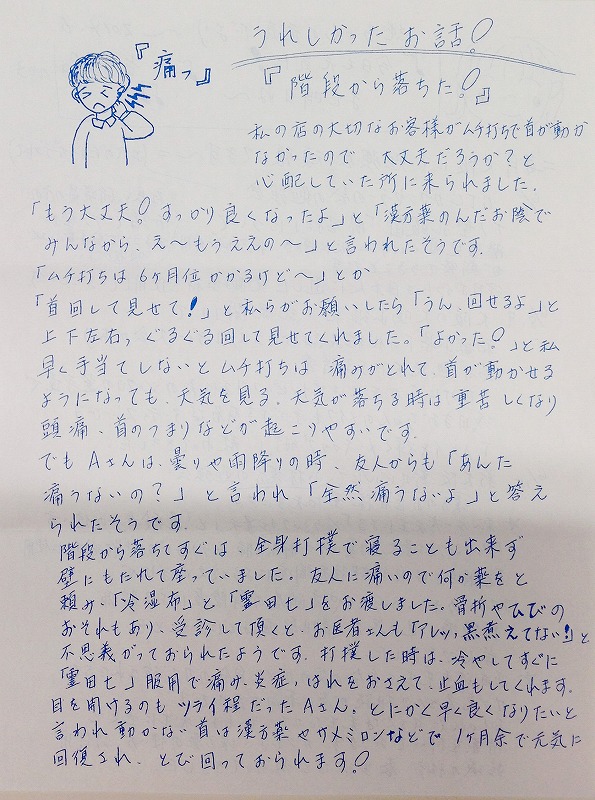 うれしかったお話!
『痛っ』
『階段から落ちた!』
私の店の大切なお客様がムチ打ちで首が動か
なかったので 大丈夫だろうか?と
心配していた所に来られました.
「もう大丈夫!すっかり良くなったよ」と「漢方薬のんだお陰で
みんなから、え〜もうええの〜」と言われたそうです.
「ムチ打ちは 6ヶ月位かかるけど〜」とか
「首回して見せて!」と私らがお願いしたら「うん、回せるよ」と
上下左右、ぐるぐる回して見せてくれました。「よかった!」と私
早く手当てしないとムチ打ちは 痛みがとれて、首が動かせる
ようになっても、天気を見る、天気が落ちる時は重苦しくなり
頭痛、首のつまりなどが起こりやすいです.
でもAさんは、曇りや雨降りの時、友人からも「あんた
痛うないの?」と言われ「全然痛うないよ」と答え
られたそうです.
階段から落ちてすぐは、全身打撲で寝ることも出来ず
壁にもたれて座っていました。友人に痛いので何か薬をと
頼み、「冷湿布」と「霊田七」をお渡しました。骨折やひびの
おそれもあり、受診して頂くと、お医者さんも「アレッ、黒煮えてない!」と
不思議がっておられたようです.打撲した時は、冷やしてすぐに
「霊田七」服用で痛み、炎症、はれをおさえて、止血もしてくれます.
目を開けるのもツライ程だったAさん。とにかく早く良くなりたいと
言われ動かない首は漢方薬やサメミロンなどで1ヶ月余で元気に
回復され、とび回っておられます!